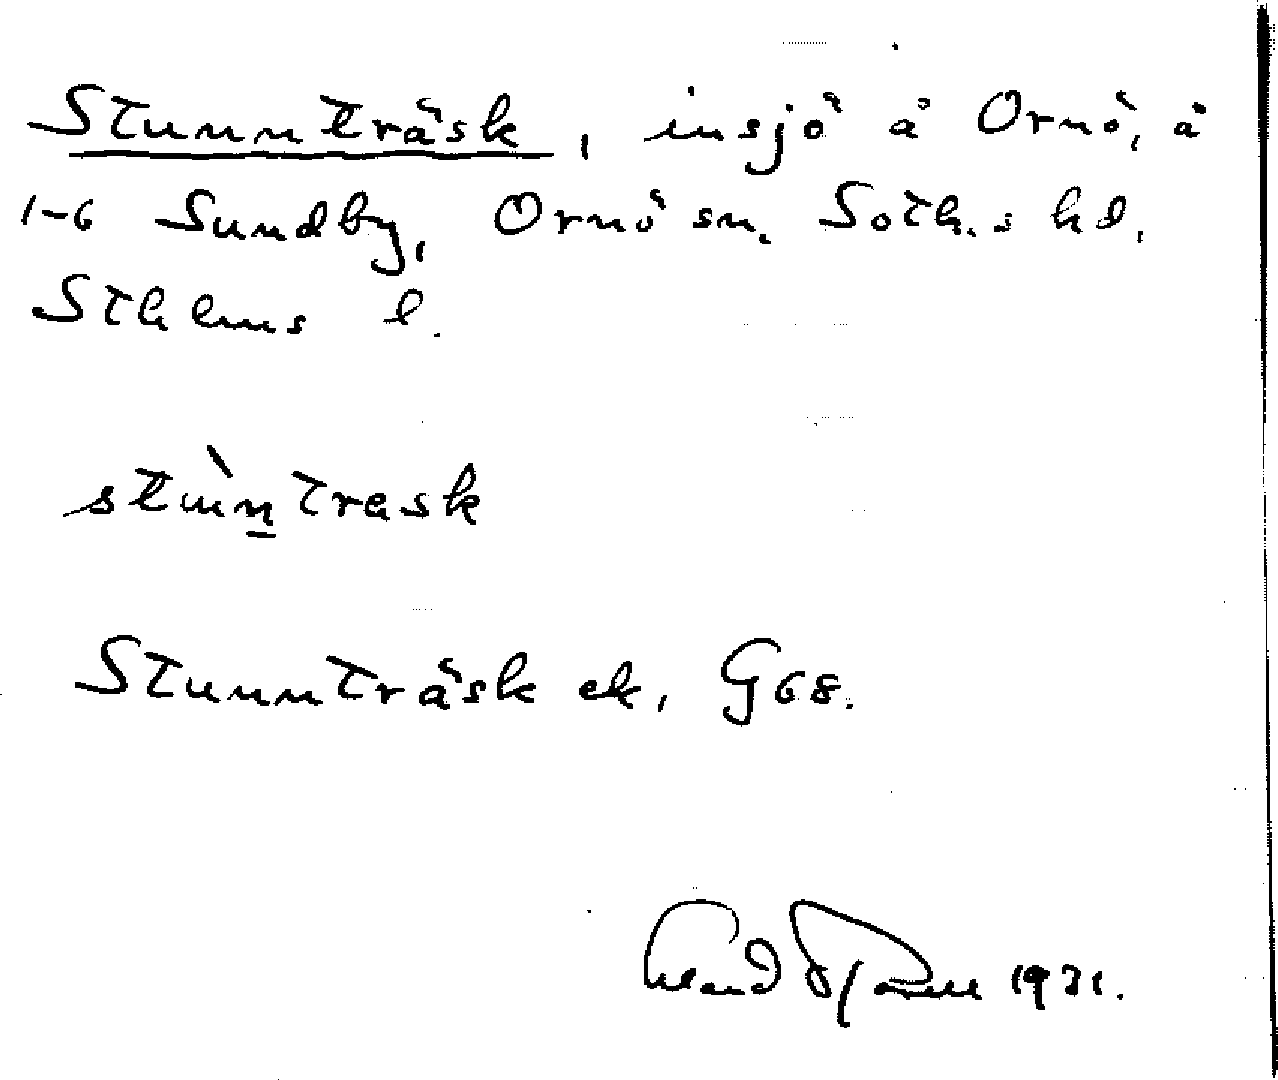 Stunnträsk, insjö å Ornö, å
1-6 Sundby, Ornö sn. Soth.s hd,
Sthlms l.
stùn̲trask
Stunnträsk ek, G68.
1931.